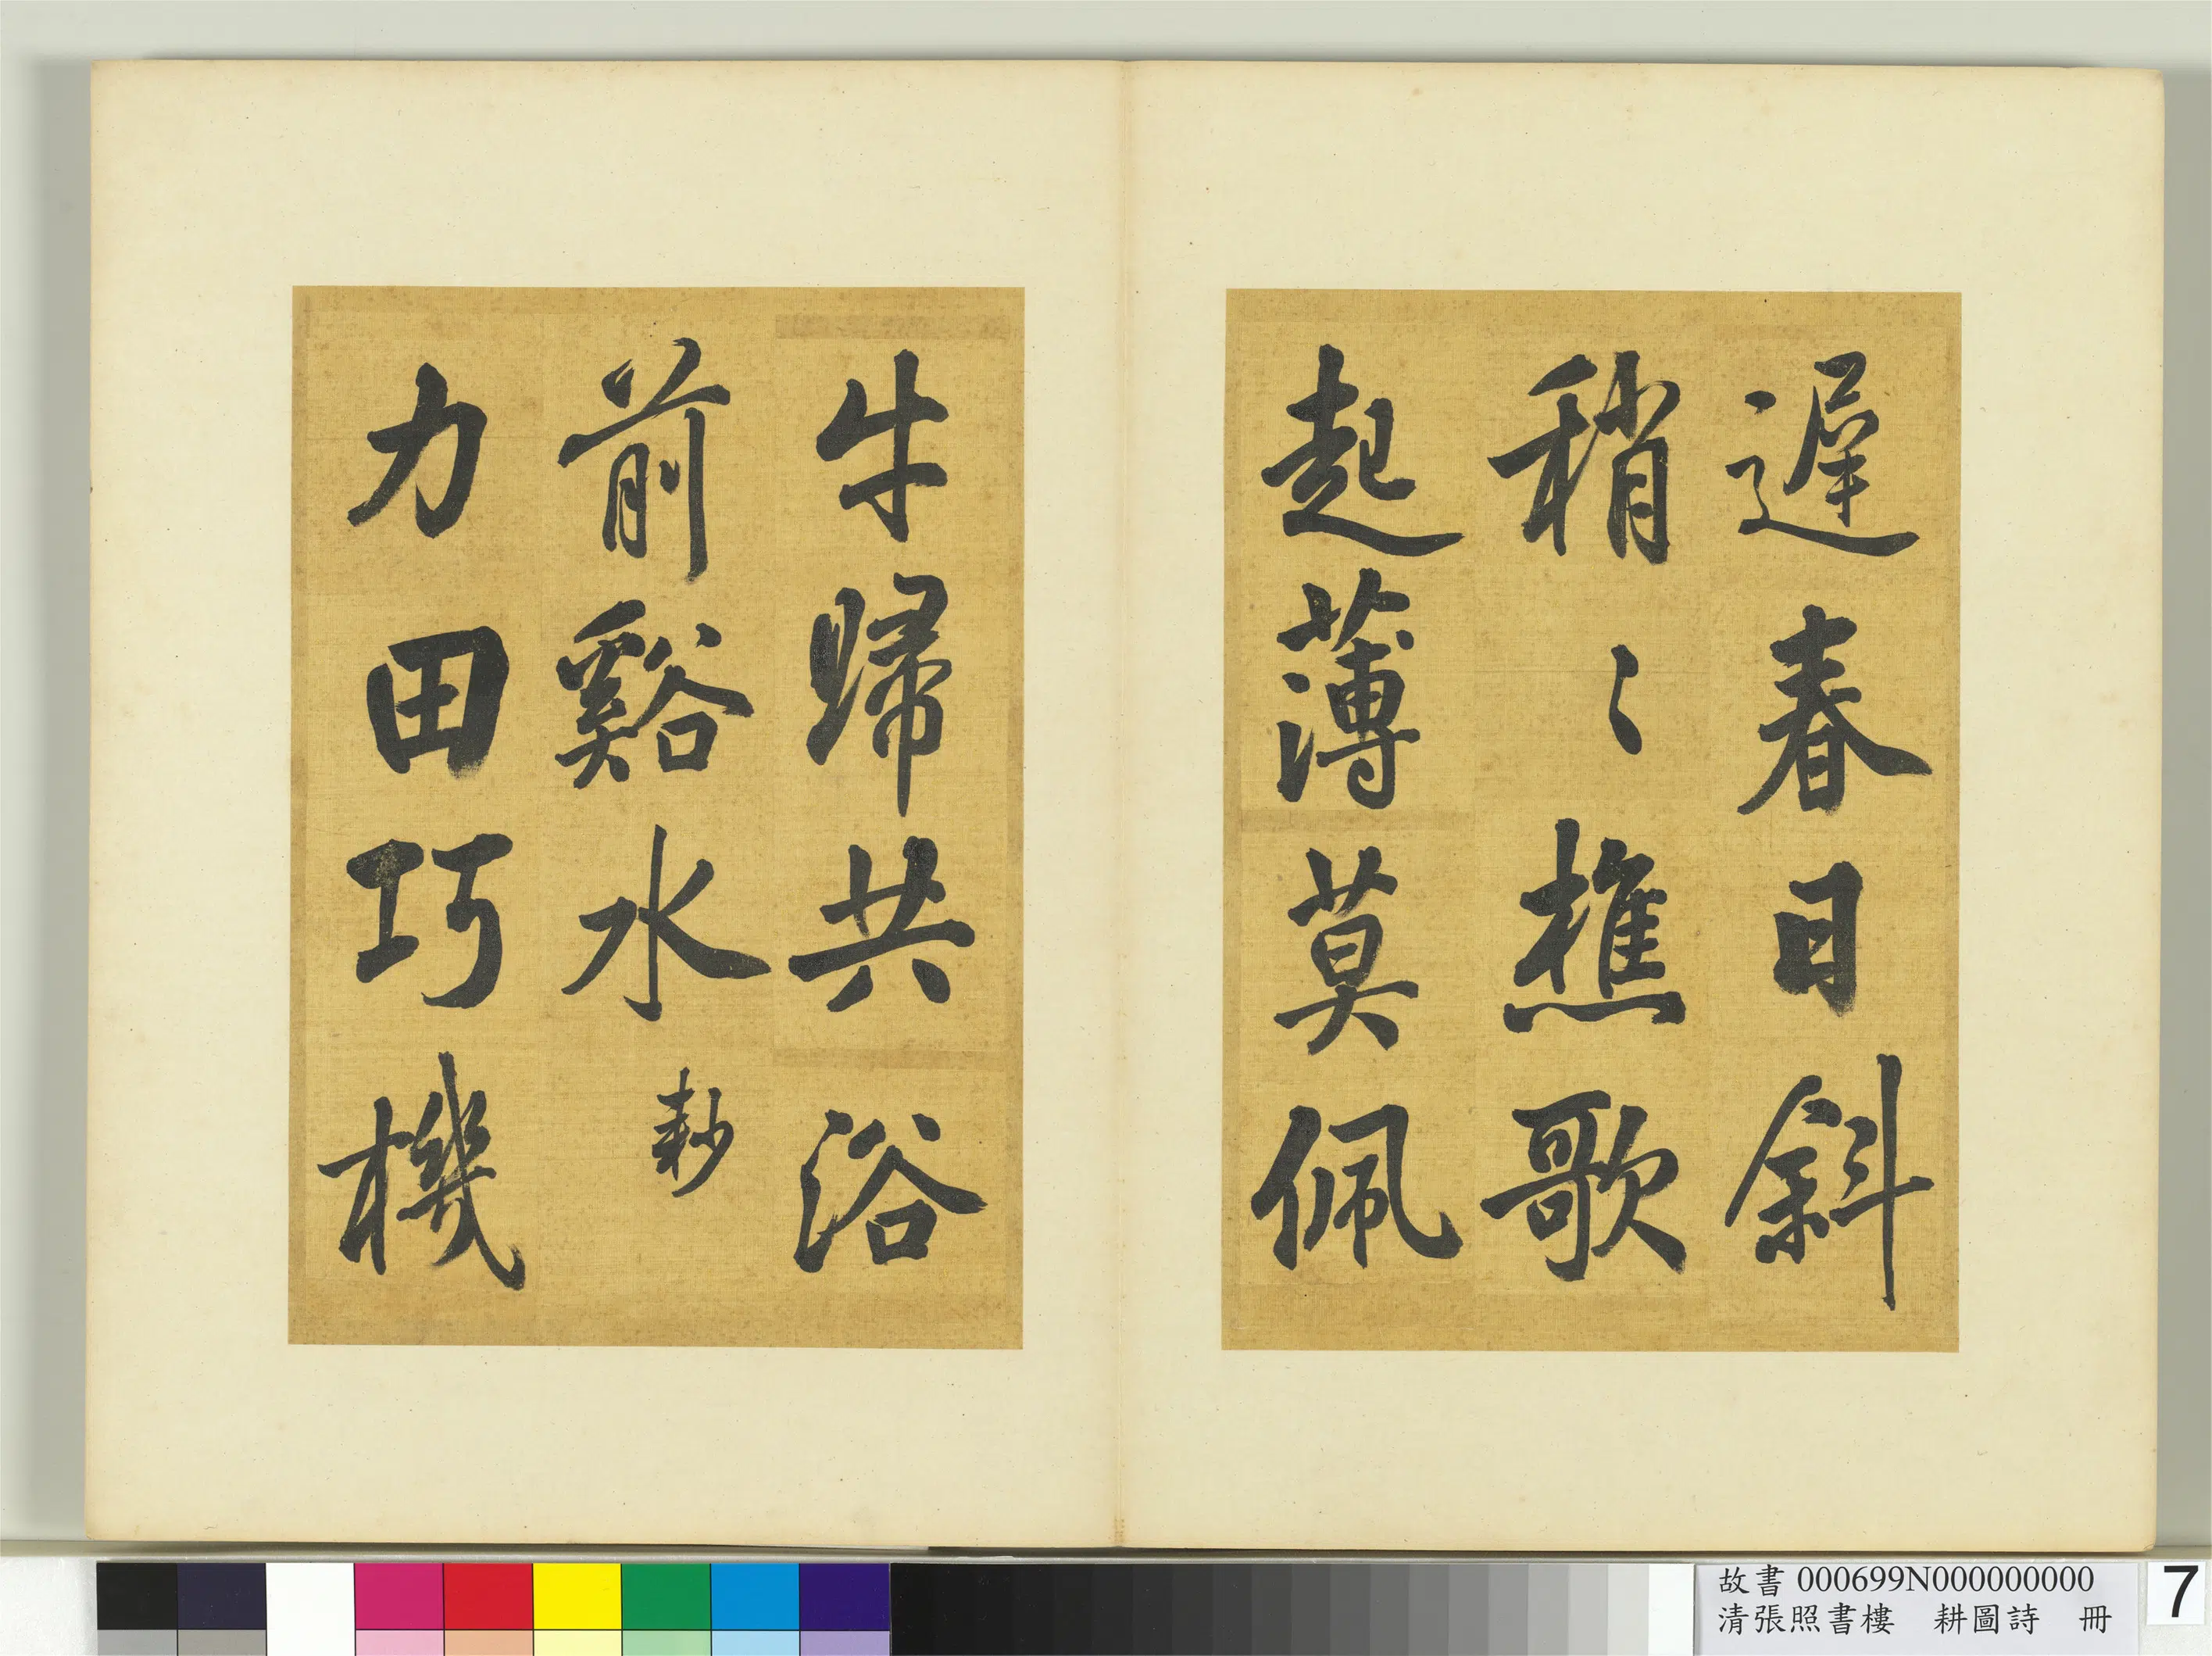 遲春日斜
稍〻樵歌
起薄莫佩
牛歸共浴
前谿水 耖
力田巧機
故書 000699N000000000
清張照書樓　耕圖詩　冊
7